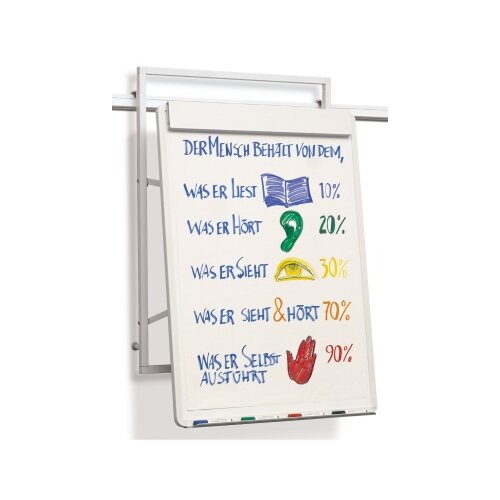 DER MENSCH BEHÄLT VON DEM,
WAS ER LIEST 10%
WAS ER HÖRT 20%
WAS ER SIEHT 30%
WAS ER SIEHT & HÖRT 70%
WAS ER SELBST 90%
AUSFÜHRT